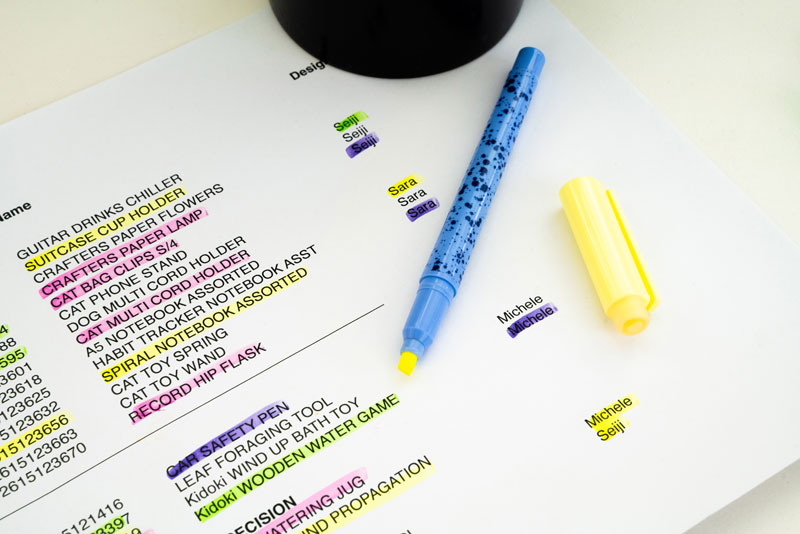 Desig
Name
Seiji
Seiji
Seiji
Sara
Sara
Sara
Michele
Michele
Michele
Seiji
GUITAR DRINKS CHILLER
SUITCASE CUP HOLDER
CRAFTERS PAPER FLOWERS
CRAFTERS PAPER LAMP
CAT BAG CLIPS S/4
CAT PHONE STAND
DOG MULTI CORD HOLDER
CAT MULTI CORD HOLDER
A5 NOTEBOOK ASSORTED
HABIT TRACKER NOTEBOOK ASST
SPIRAL NOTEBOOK ASSORTED
CAT TOY SPRING
CAT TOY WAND
RECORD HIP FLASK
4
88
595
3601
23618
5123625
5123632
615123656
2615123663
2615123670
CAR SAFETY PEN
LEAF FORAGING TOOL
Kidoki WIND UP BATH TOY
Kidoki WOODEN WATER GAME
5121416
23397
ECISION
WATERING JUG
ND PROPAGATION